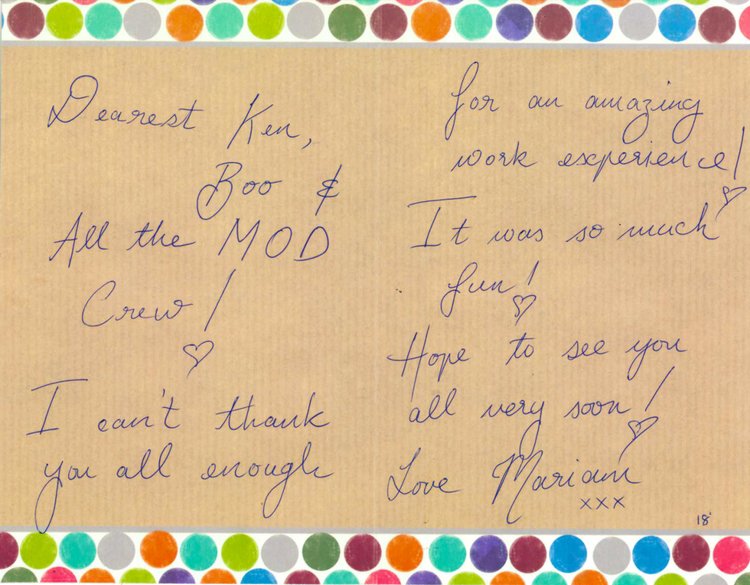 Dearest Ken,
Boo &
All the MOD
Crew! ♡
I can't thank
you all enough
for an amazing
work experience! ♡
It was so much
fun! ♡
Hope to see you
all very soon! ♡
Love Mariam
xxx
18'